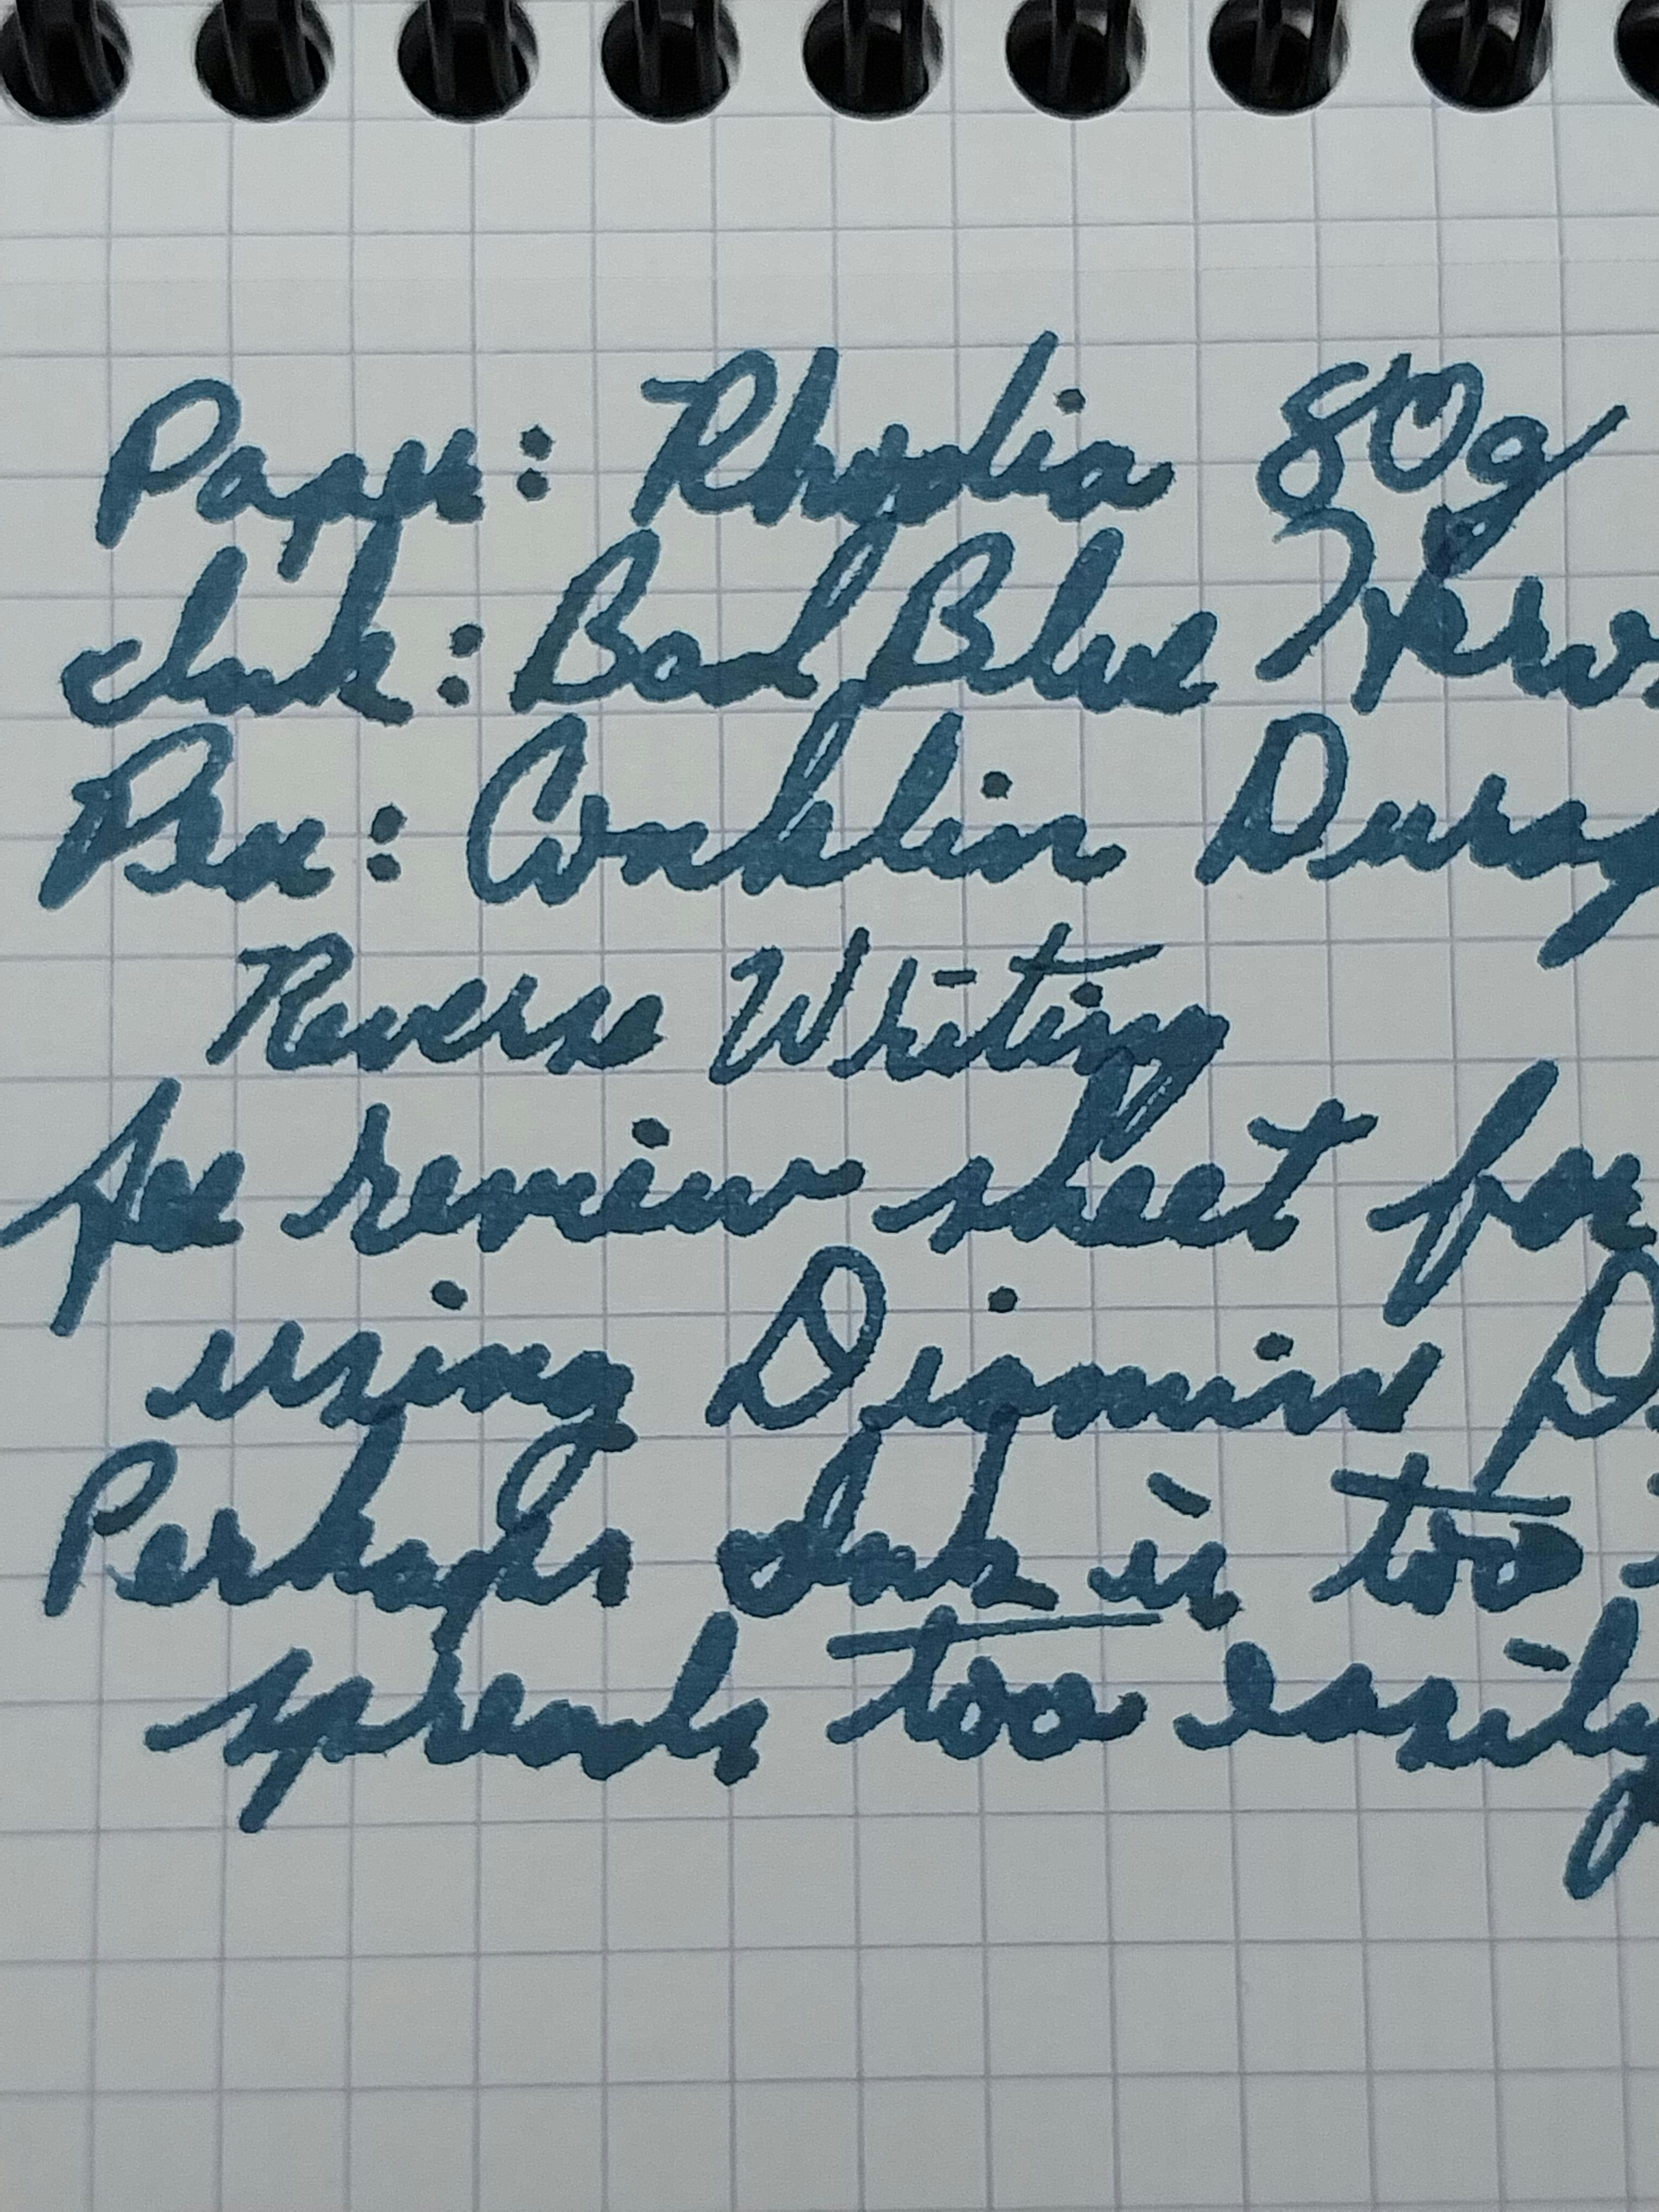 Paper: Rhodia 80g
Ink: Bad Blue Heron
Pen: Conklin Durag
Reverse Writing
See review sheet for
using Diamine D
Perhaps Ink is too
spreads too easily